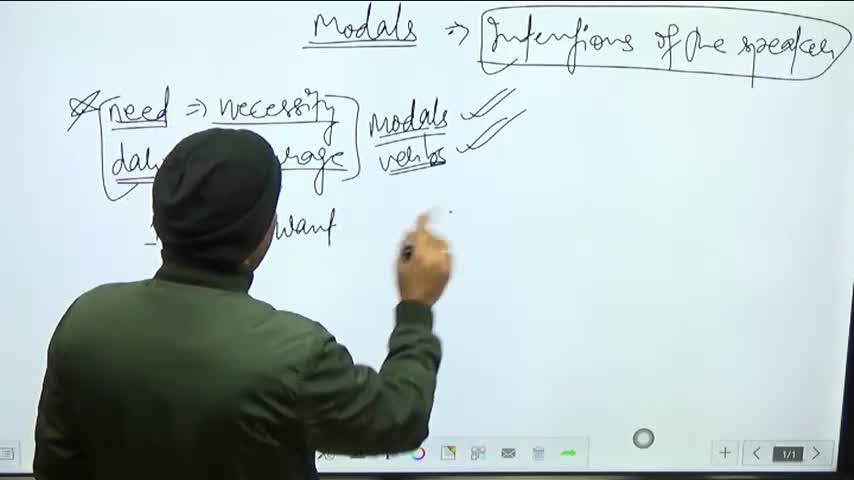 Modals => Intensions of the speaker
need => necessity
modals
verbs
want
1/1